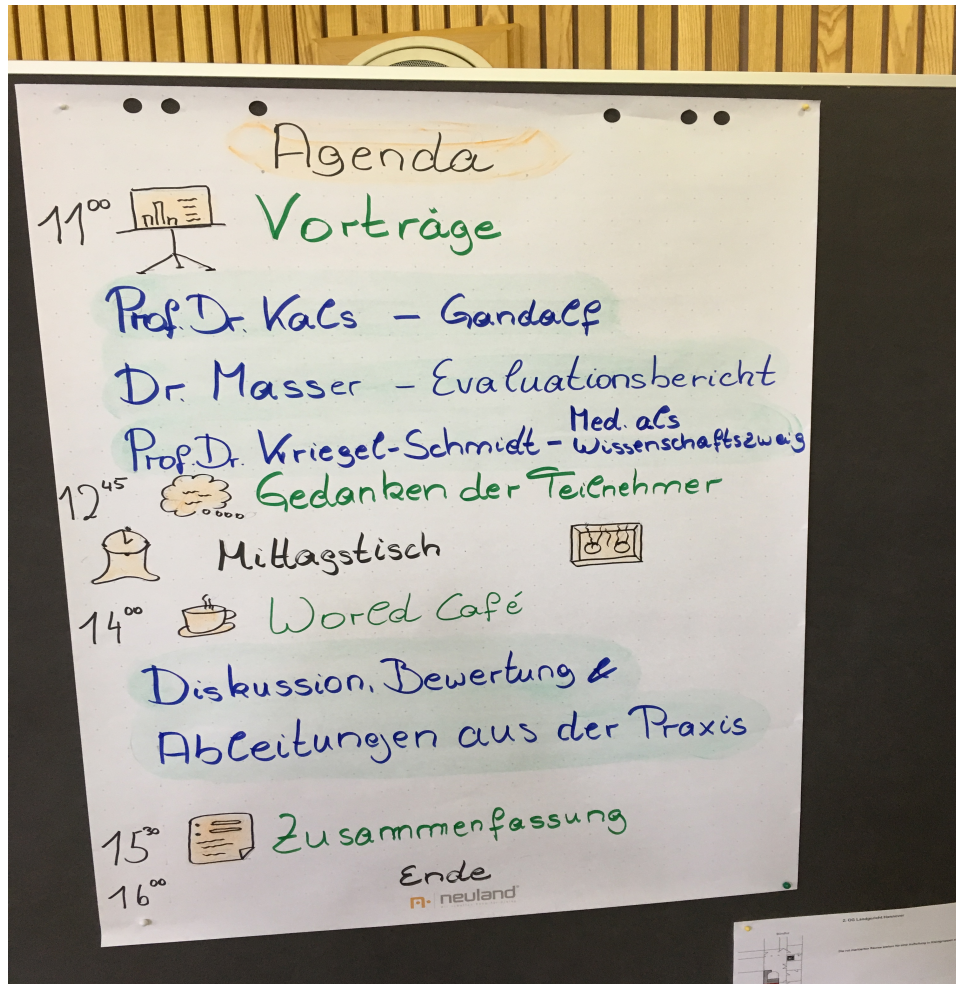 Agenda
11⁰⁰ Vorträge
Prof. Dr. Kals – Gandalf
Dr. Masser – Evaluationsbericht
Prof. Dr. Kriegel-Schmidt – Med. als Wissenschaftszweig
12⁴⁵ Gedanken der Teilnehmer
Mittagstisch
14⁰⁰ World Café
Diskussion, Bewertung &
Ableitungen aus der Praxis
15³⁰ Zusammenfassung
16⁰⁰ Ende
neuland